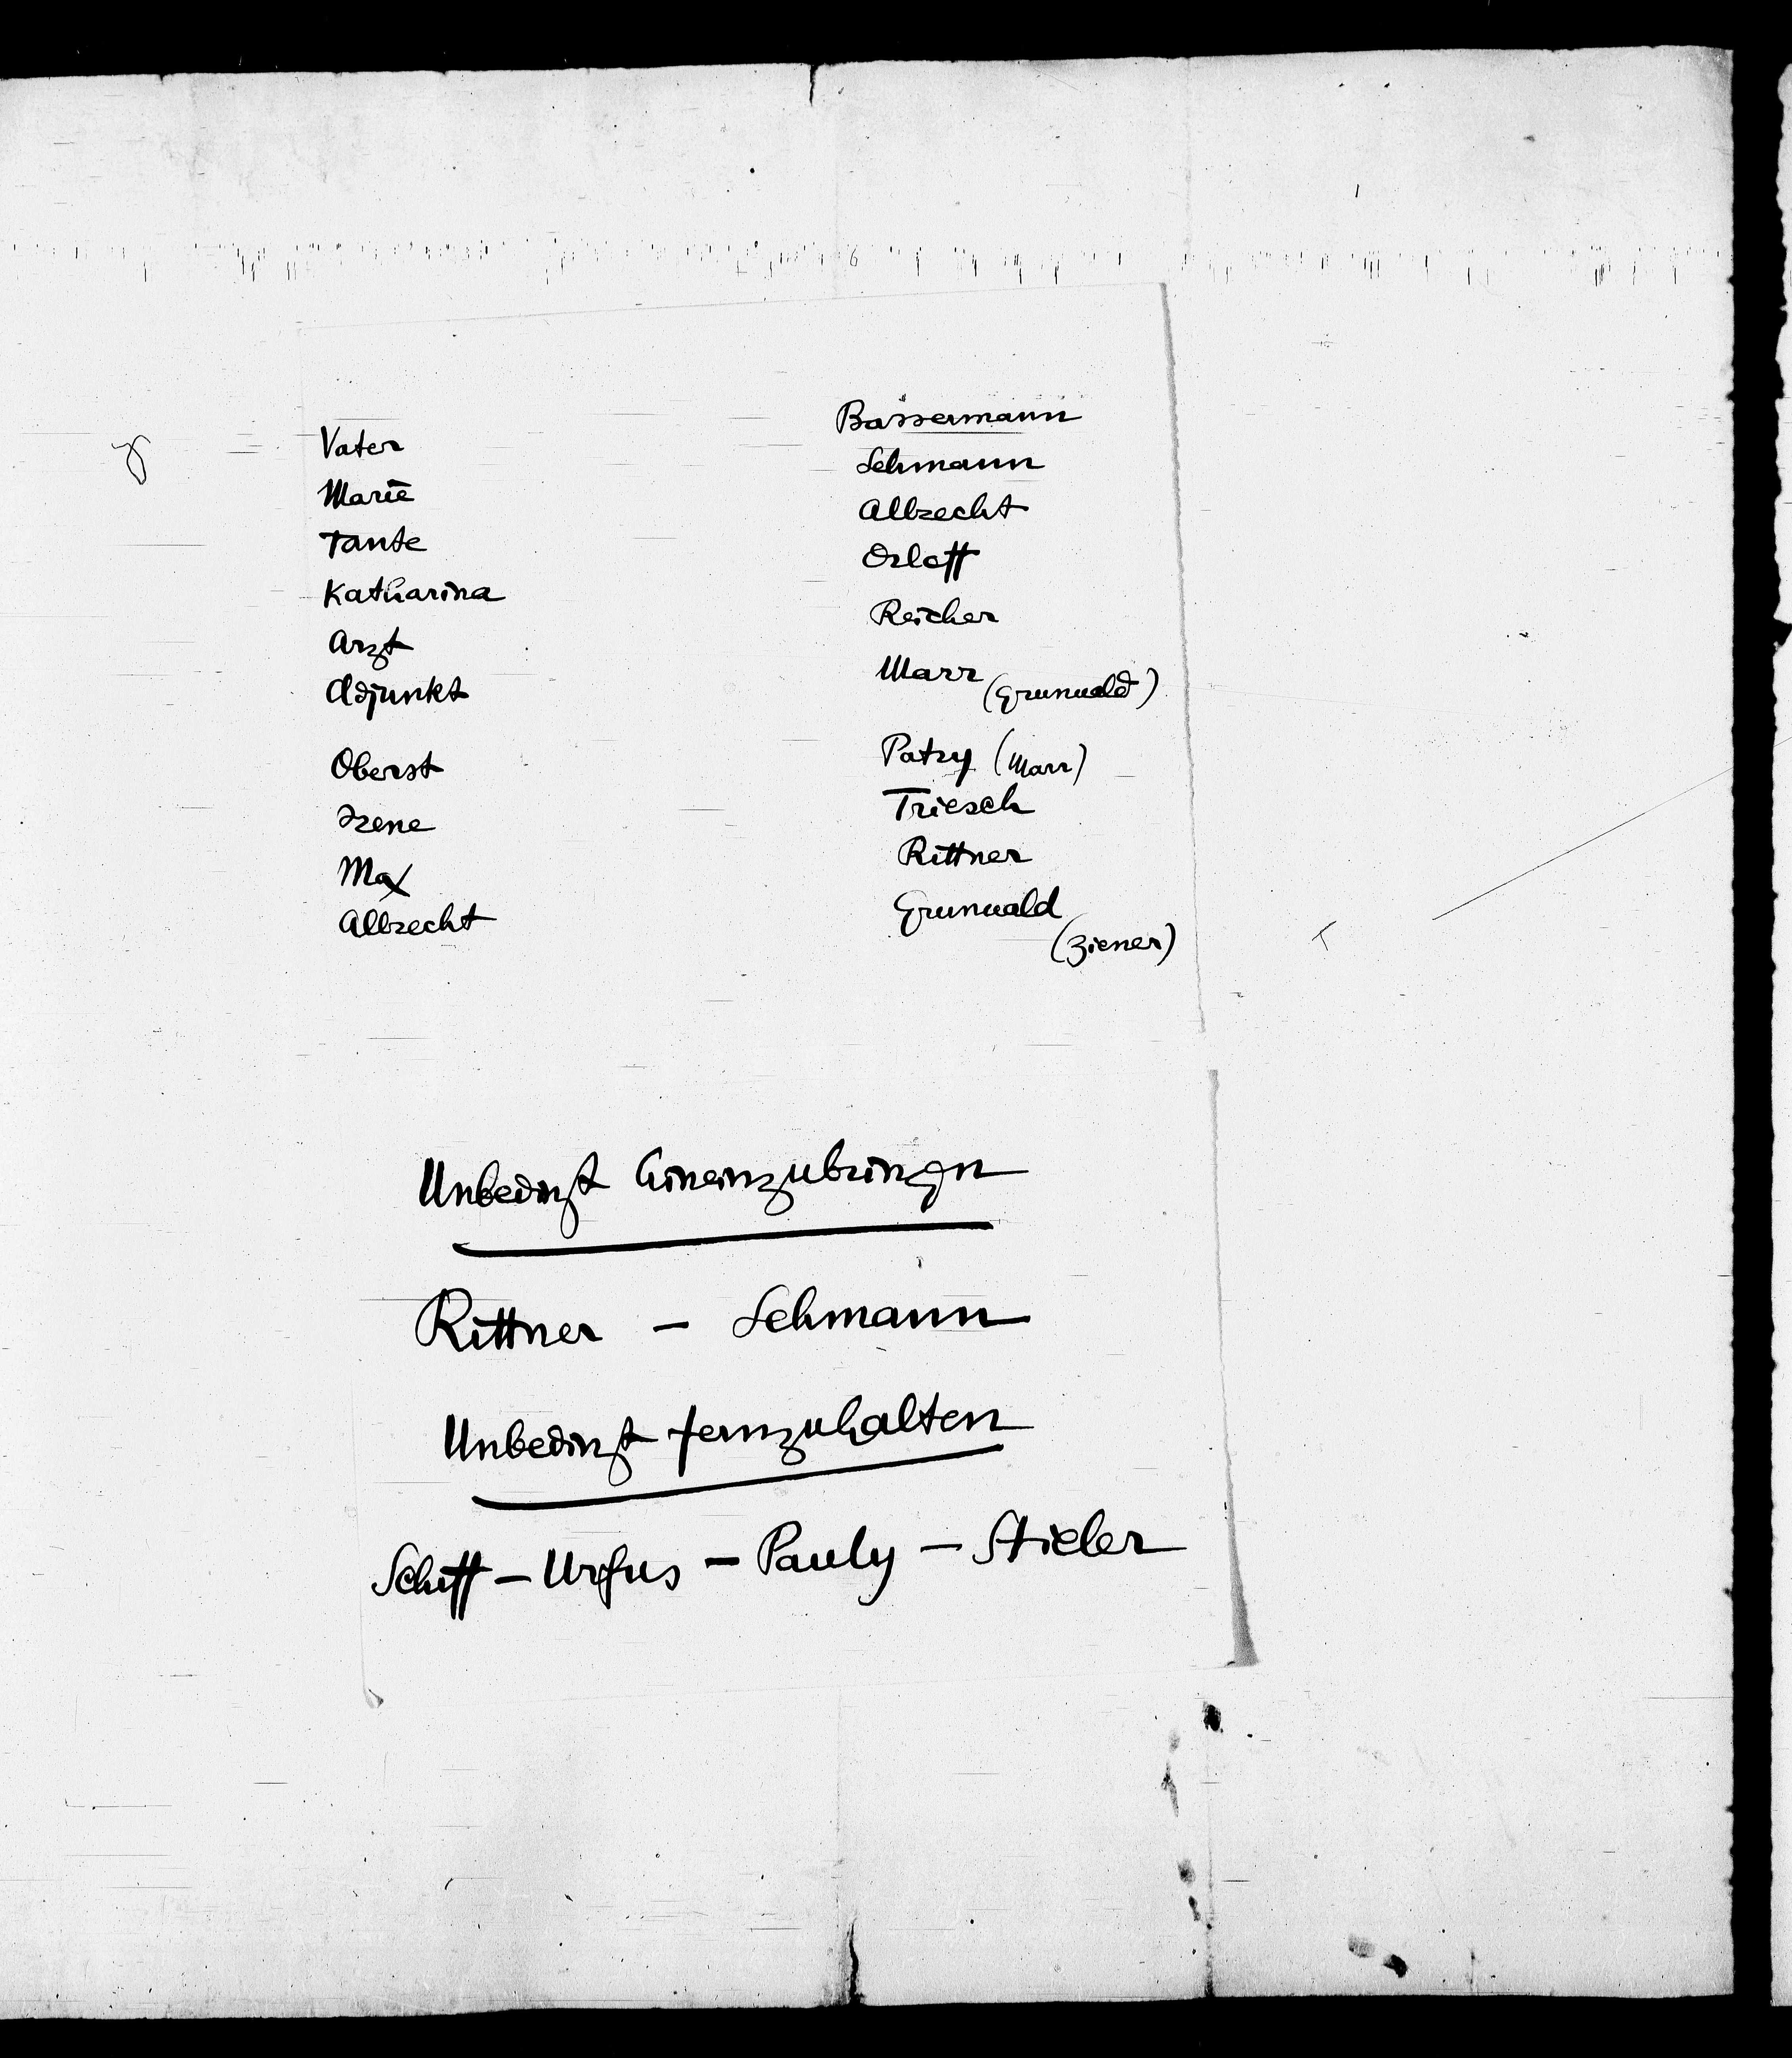 Vater Bassermann
Marie Lehmann
Tante Albrecht
Katharina Orloff
Arzt Reicher
Adjunkt Marr (Grunwald)
Oberst Patry (Marr)
Irene Triesch
Max Rittner
Albrecht Grunwald
(Ziener)
Unbedingt hineinzubringen
Rittner – Lehmann
Unbedingt fernzuhalten
Schiff – Urfus – Pauly – Stieler